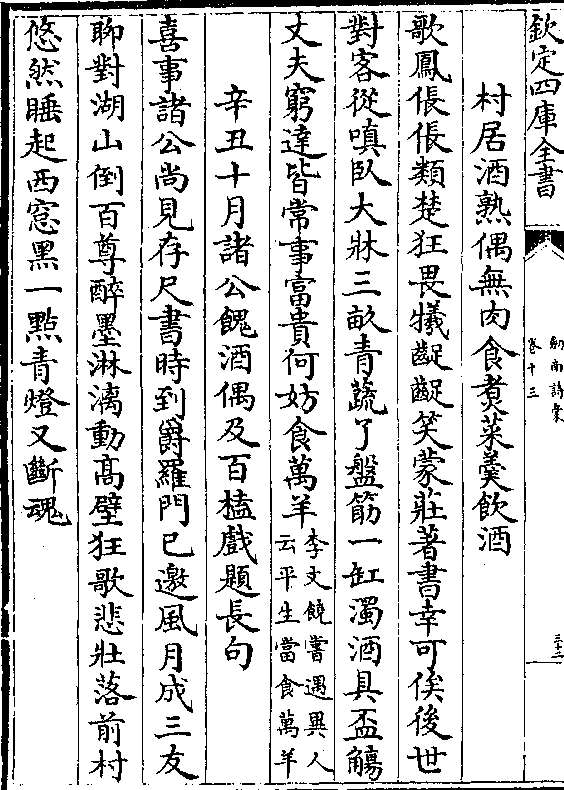 欽定四庫全書
劍南詩稾
卷十三
三十二
村居酒熟偶無肉食煑菜羹飲酒
歌鳳倀倀類楚狂畏犧齪齪笑蒙莊著書幸可俟後世
對客從嗔臥大牀三畝青蔬了盤筯一缸濁酒具盃觴
丈夫窮達皆常事富貴何妨食萬羊李文饒嘗遇異人
云平生當食萬羊
辛丑十月諸公餽酒偶及百榼戲題長句
喜事諸公尚見存尺書時到爵羅門已邀風月成三友
聊對湖山倒百尊醉墨淋漓動髙壁狂歌悲壯落前村
悠然睡起西窓黒一㸃青燈又斷魂